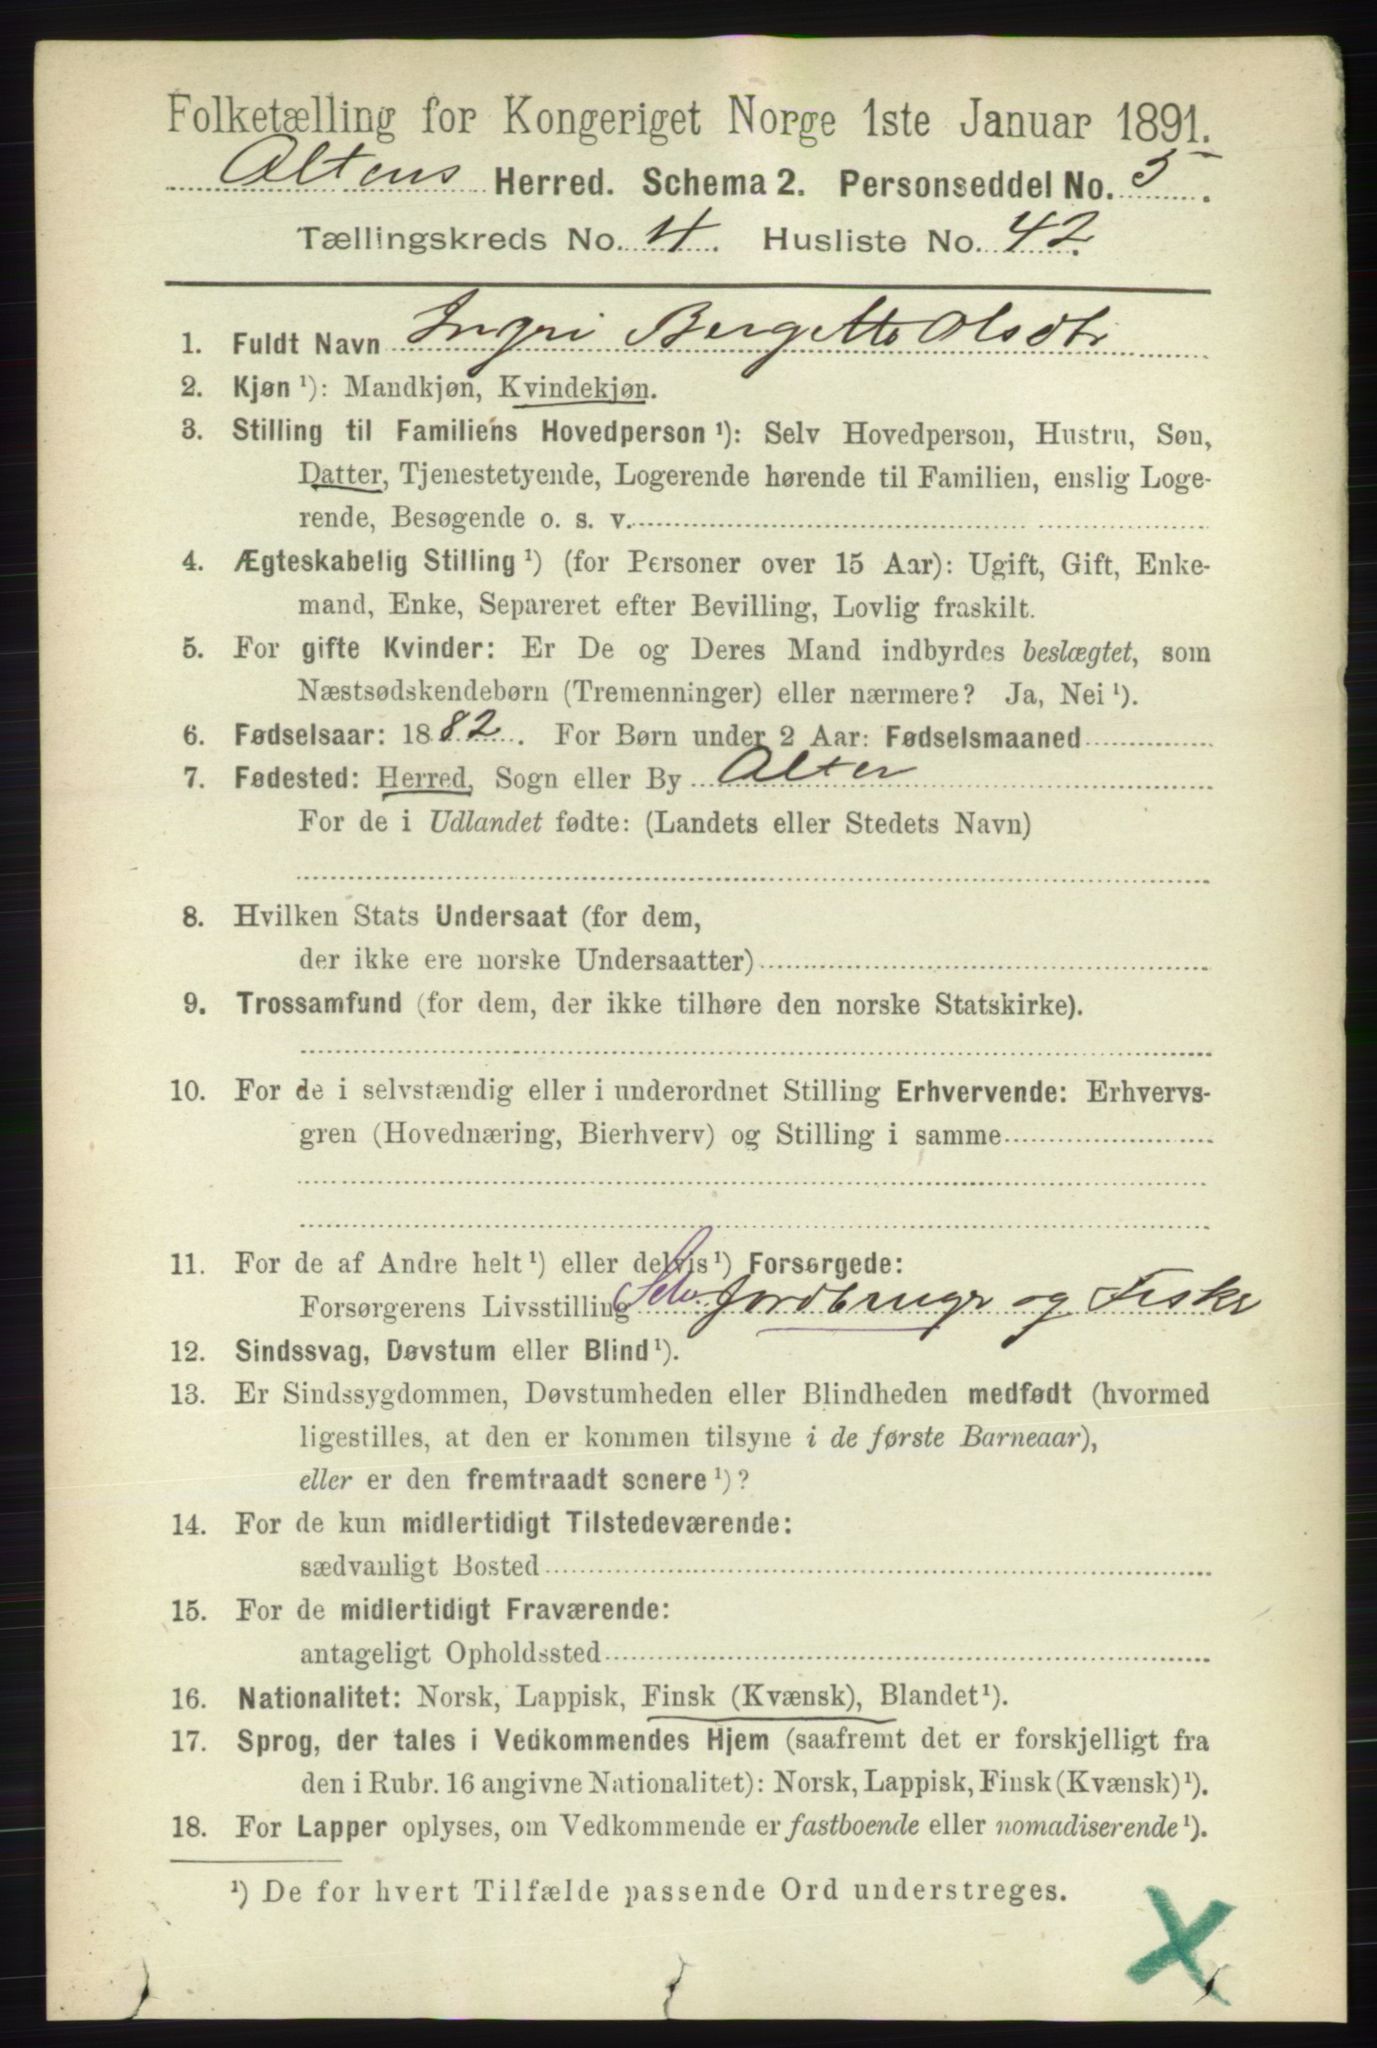 Folketælling for Kongeriget Norge 1ste Januar 1891.
Altens Herred. Schema 2. Personseddel No. 5.
Tællingskreds No. 4. Husliste No. 42.
1. Fuldt Navn Ingri Bergette Olsdtr
2. Kjøn ¹): Mandkjøn, Kvindekjøn.
3. Stilling til Familiens Hovedperson ¹): Selv Hovedperson, Hustru, Søn,
Datter, Tjenestetyende, Logerende hørende til Familien, enslig Loge-
rende, Besøgende o. s. v.
4. Ægteskabelig Stilling ¹) (for Personer over 15 Aar): Ugift, Gift, Enke-
mand, Enke, Separeret efter Bevilling, Lovlig fraskilt.
5. For gifte Kvinder: Er De og Deres Mand indbyrdes beslægtet, som
Næstsødskendebørn (Tremenninger) eller nærmere? Ja, Nei ¹).
6. Fødselsaar: 1882. For Børn under 2 Aar: Fødselsmaaned
7. Fødested: Herred, Sogn eller By Alten
For de i Udlandet fødte: (Landets eller Stedets Navn)
8. Hvilken Stats Undersaat (for dem,
der ikke ere norske Undersaatter)
9. Trossamfund (for dem, der ikke tilhøre den norske Statskirke).
10. For de i selvstændig eller i underordnet Stilling Erhvervende: Erhvervs-
gren (Hovednæring, Bierhverv) og Stilling i samme
11. For de af Andre helt ¹) eller delvis ¹) Forsørgede:
Forsørgerens Livsstilling Selv. Jordbruger og Fisker
12. Sindssvag, Døvstum eller Blind ¹).
13. Er Sindssygdommen, Døvstumheden eller Blindheden medfødt (hvormed
ligestilles, at den er kommen tilsyne i de første Barneaar),
eller er den fremtraadt senere ¹)?
14. For de kun midlertidigt Tilstedeværende:
sædvanligt Bosted
15. For de midlertidigt Fraværende:
antageligt Opholdssted
16. Nationalitet: Norsk, Lappisk, Finsk (Kvænsk), Blandet ¹).
17. Sprog, der tales i Vedkommendes Hjem (saafremt det er forskjelligt fra
den i Rubr. 16 angivne Nationalitet): Norsk, Lappisk, Finsk (Kvænsk) ¹).
18. For Lapper oplyses, om Vedkommende er fastboende eller nomadiserende ¹).
¹) De for hvert Tilfælde passende Ord understreges.